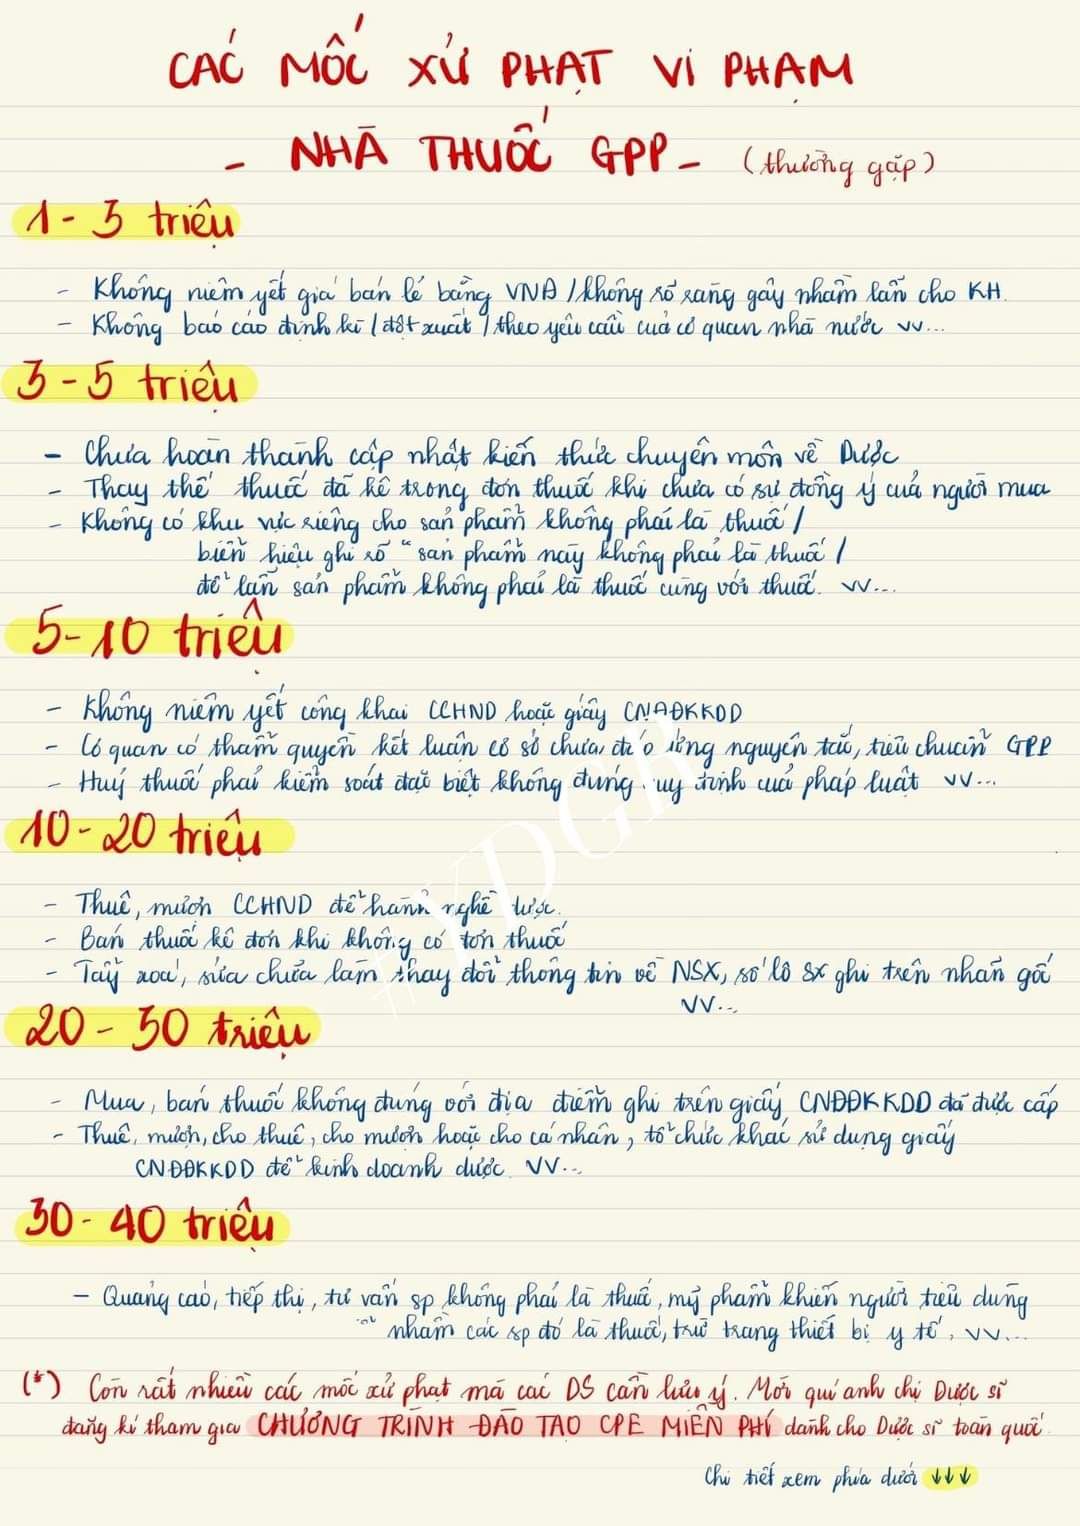 CÁC MỐC XỬ PHẠT VI PHẠM
- NHÀ THUỐC GPP - (thường gặp)
1 - 3 triệu
- Không niêm yết giá bán lẻ bằng VNĐ / không rõ ràng gây nhầm lẫn cho KH.
- Không báo cáo định kì / đột xuất / theo yêu cầu của cơ quan nhà nước vv...
3 - 5 triệu
- Chưa hoàn thành cập nhật kiến thức chuyên môn về Dược
- Thay thế thuốc đã kê trong đơn thuốc khi chưa có sự đồng ý của người mua
- Không có khu vực riêng cho sản phẩm không phải là thuốc /
biển hiệu ghi rõ "sản phẩm này không phải là thuốc /
để lẫn sản phẩm không phải là thuốc cùng với thuốc. vv...
5 - 10 triệu
- Không niêm yết công khai CCHND hoặc giấy CNĐĐKKDD
- Cơ quan có thẩm quyền kết luận cơ sở chưa đáp ứng nguyên tắc, tiêu chuẩn GPP
- Huỷ thuốc phải kiểm soát đặc biệt không đúng quy định của pháp luật vv...
10 - 20 triệu
- Thuê, mượn CCHND để hành nghề dược.
- Bán thuốc kê đơn khi không có đơn thuốc
- Tẩy xoá, sửa chữa làm thay đổi thông tin về NSX, số lô sx ghi trên nhãn gốc
vv...
20 - 30 triệu
- Mua, bán thuốc không đúng với địa điểm ghi trên giấy CNĐĐKKDD đã được cấp
- Thuê, mượn, cho thuê, cho mượn hoặc cho cá nhân, tổ chức khác sử dụng giấy
CNĐĐKKDD để kinh doanh dược. vv...
30 - 40 triệu
- Quảng cáo, tiếp thị, tư vấn sp không phải là thuốc, mỹ phẩm khiến người tiêu dùng
nhầm các sp đó là thuốc, trừ trang thiết bị y tế, vv...
(*) Còn rất nhiều các mốc xử phạt mà các DS cần lưu ý. Mời quí anh chị Dược sĩ
đăng kí tham gia CHƯƠNG TRÌNH ĐÀO TẠO CPE MIỄN PHÍ dành cho Dược sĩ toàn quốc.
Chi tiết xem phía dưới ↓↓↓
#YDGR